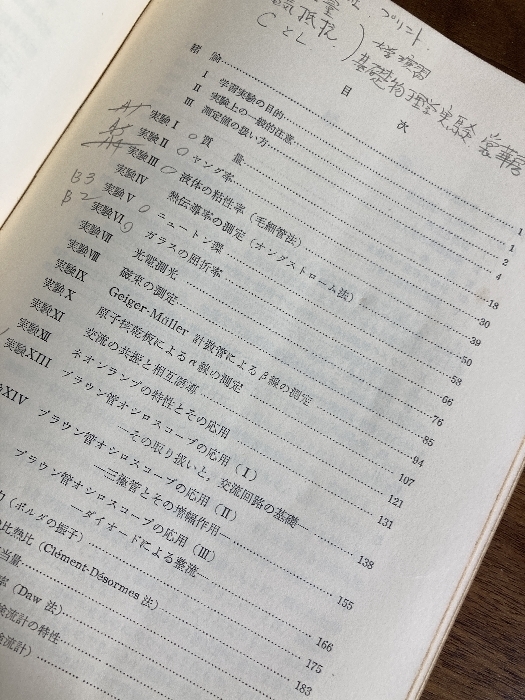 プリント
抵抗
CとL
基礎物理学実験
目 次
緒 論 1
I 学習実験の目的 1
II 実験上の一般的注意 2
III 測定値の扱い方 4
A1 実験I 質 量 18
実験II ヤング率 30
実験III 液体の粘性率(毛細管法) 39
B3 実験IV 熱伝導率の測定(オングストローム法) 50
B2 実験V ニュートン環 58
実験VI ガラスの屈折率 66
実験VII 光電測光 76
実験VIII 磁束の測定 85
実験IX Geiger-Müller 計数管によるβ線の測定 94
実験X 原子核乾板によるα線の測定 107
実験XI 交流の共振と相互誘導 121
実験XII ネオンランプの特性とその応用 131
実験XIII ブラウン管オシロスコープの応用(I)
—その取り扱いと,交流回路の基礎— 138
XIV ブラウン管オシロスコープの応用(II)
—三極管とその増幅作用— 155
ブラウン管オシロスコープの応用(III)
—ダイオードによる整流— 166
(ボルダの振子) 175
比熱比(Clément-Désormes 法) 183
当量
率(Daw 法)
検流計の特性